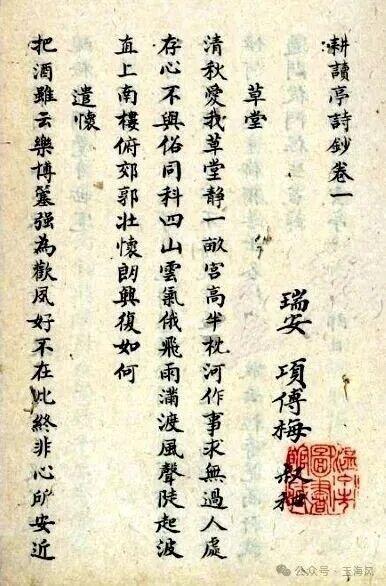 耕讀亭詩鈔卷一
瑞安 項傅梅 叔和
草堂
清秋愛我草堂靜一畝宮高半枕河作事求無過人處
存心不與俗同科四山雲氣俄飛雨滿渡風聲陡起波
直上南樓俯郊郭壯懷朗興復如何
遣懷
把酒雖云樂博簺强為歡夙好不在此終非心所安近
公众号·玉海风